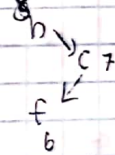 h
c 7
f
6